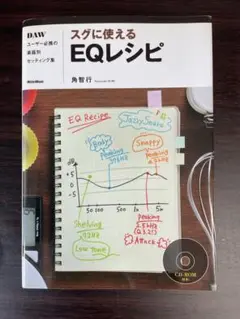 DAW
ユーザー必携の
楽器別
セッティング集
スグに使える
EQレシピ
角智行
EQ Recipe
Jazzy Snare
Body
Peaking
Snappy
Peaking
+5
0
-5
50 100
500
1k
5k
Shelving
Low Tone
Peaking
Attack
CD-ROM
付き